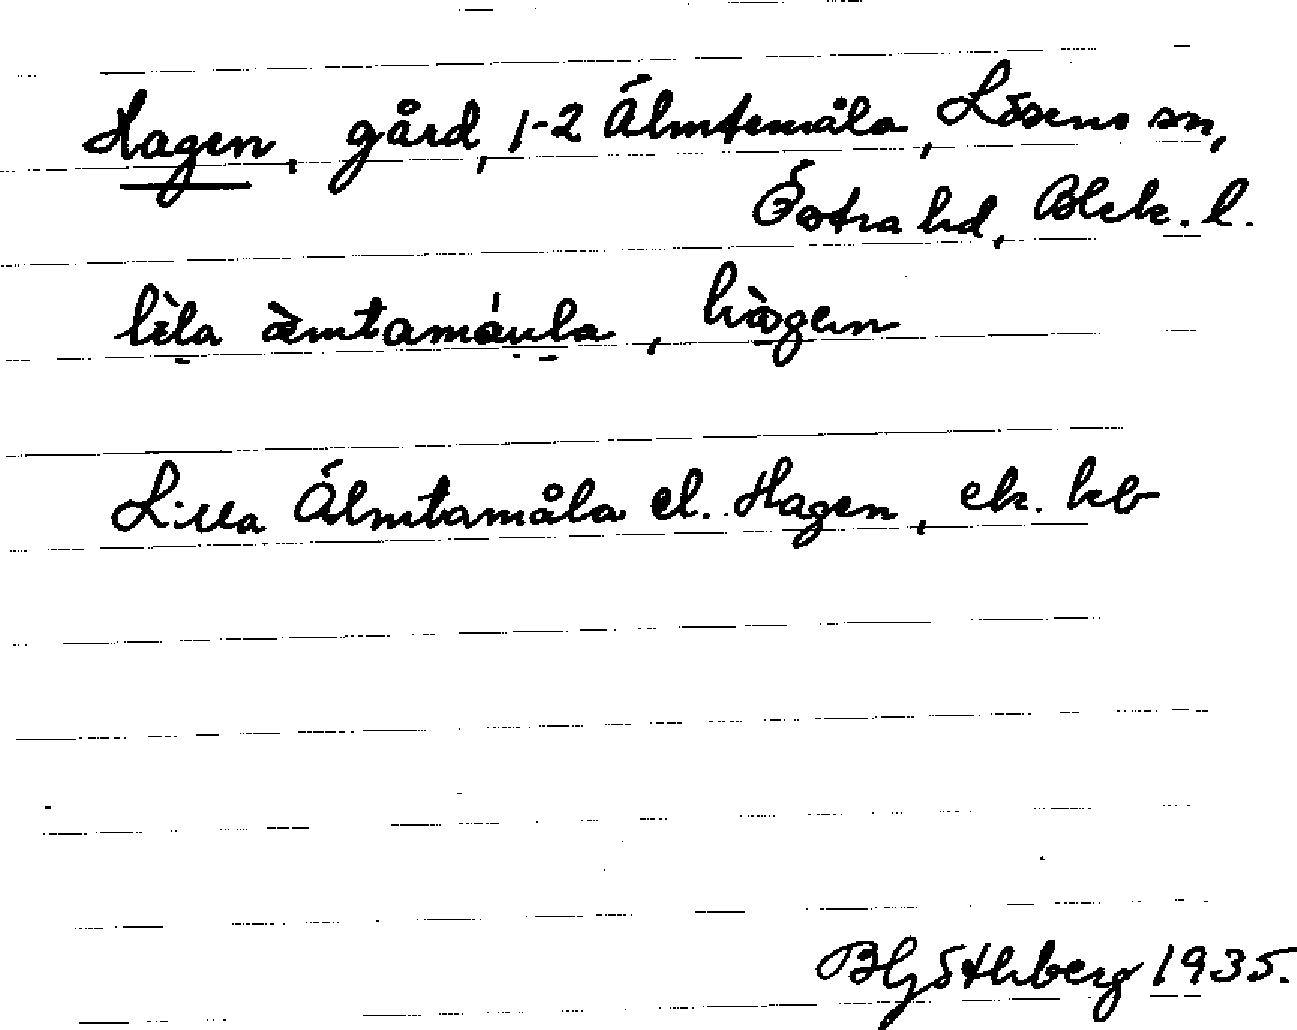 Hagen, gård, 1-2 Älmtemåla, Lösens sn,
Östra hd, Blek. l.
lìla æ̀mtamåula, hàgen
Lilla Älmtamåla el. Hagen, ek. kb
BHjöthberg 1935.